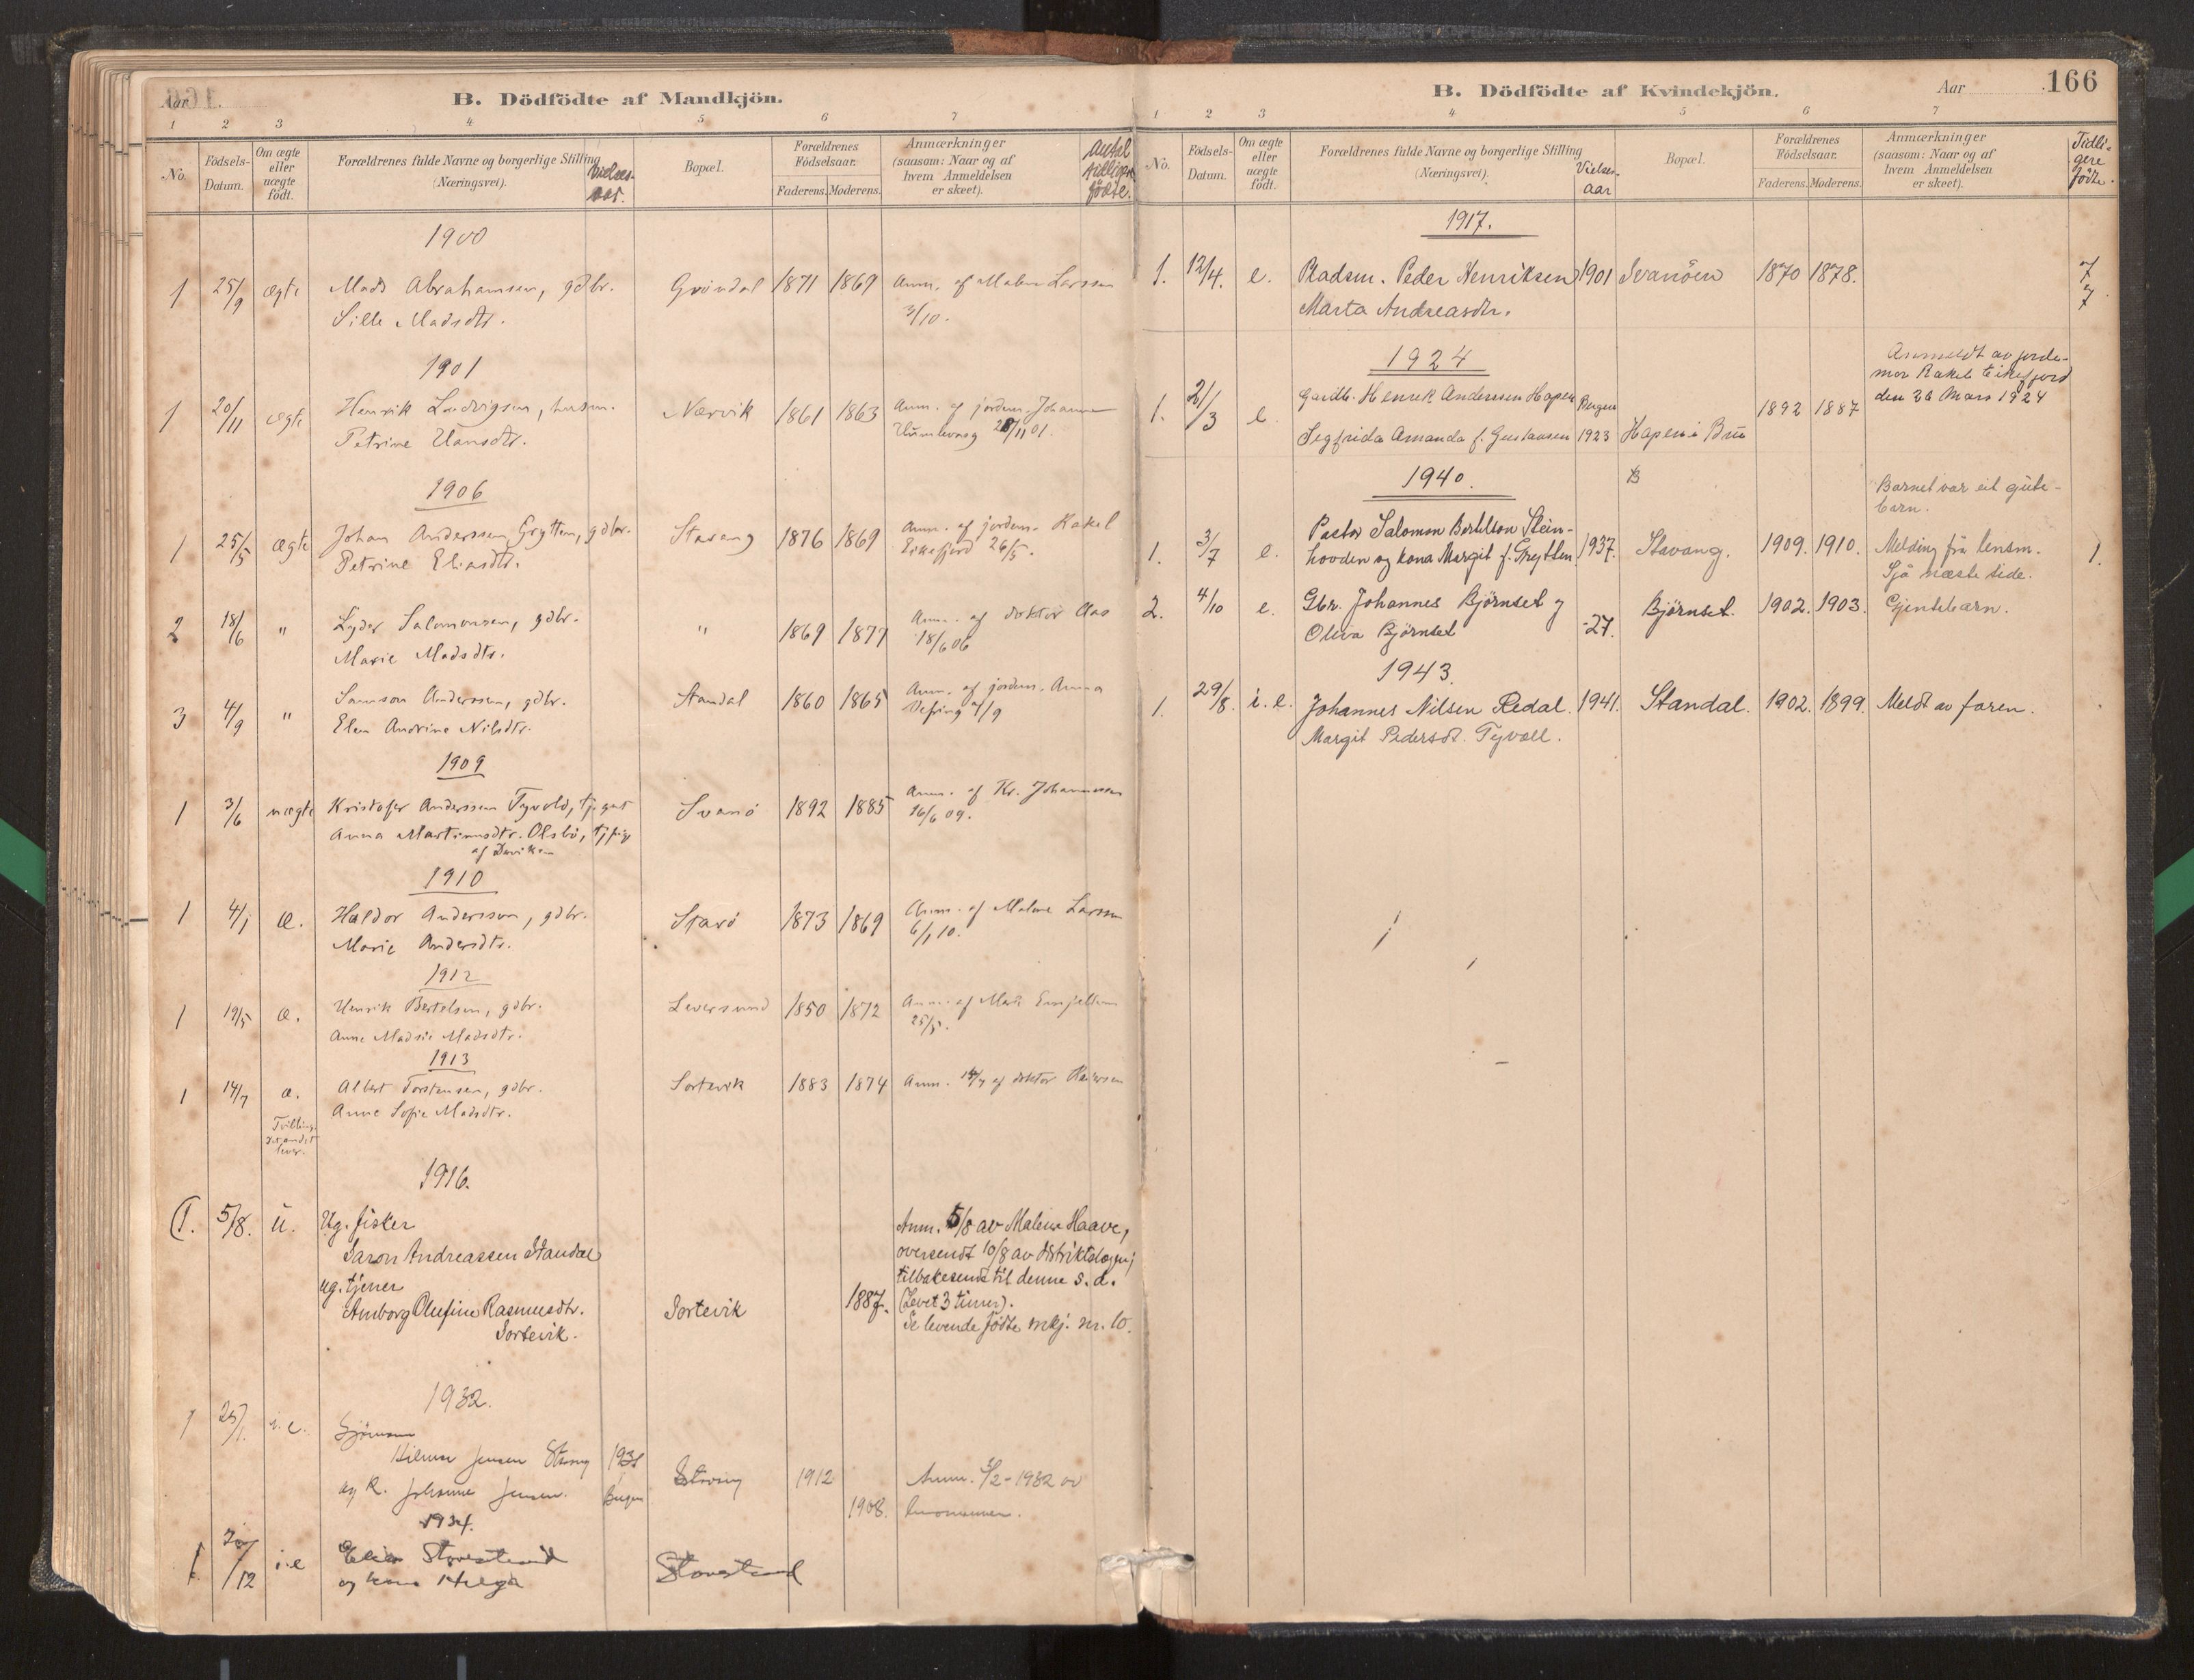 Aar
B. Dödfödte af Mandkjön.
1 2 3 4 5 6 7
No.
Födsels-
Datum.
Om ægte
eller
uægte
födt.
Forældrenes fulde Navne og borgerlige Stilling
(Næringsvei).
Vielses-
aar.
Bopæl.
Forældrenes
Födselsaar.
Faderens. Moderens.
Anmærkninger
(saasom: Naar og af
hvem Anmeldelsen
er skeet).
Antal
tidligere
födte.
1900
1 25/9 ægte Mads Abrahamsen, gdbr. Gröndal 1871 1869 Anm. af Malene Larsen
Sille Madsdtr. 3/10.
1901
1 20/11 ægte Henrik Ludvigsen, husm. Nærvik 1861 1863 Anm. af jordem. Johanne
Petrine Hansdtr. 28/11 01.
1906
1 25/5 ægte Johan Anderssen Grytten, gdbr. Stavang 1876 1869 Anm. af jordem. Rakel
Petrine Eliasdtr. Eikefjord 26/5.
2 18/6 " Lyder Salomonsen, gdbr. " 1869 1877 Anm. af doktor Aas
Marie Madsdtr. 18/6 06
3 4/9 " Samson Anderssen, gdbr. Standal 1860 1865 Anm. af jordem. Anna
Elen Andrine Nilsdtr. Vefring 9/9
1909
1 3/6 uægte Kristofer Anderssen Tyvold, tj.gut Svanö 1892 1885 Anm. af Kr. Johannessen
Anna Martinusdtr. Olsbö, tj.pige 16/6 09.
af Daviken
1910
1 4/1 æ. Haldor Anderssen, gdbr. Stavö 1873 1869 Anm. af Malene Larsen
Marie Andersdtr. 6/1 10.
1912
1 19/5 æ. Henrik Bertelsen, gdbr. Leversund 1850 1872 Anm. af
Anne Madsie Madsdtr. 25/5.
1913
1 14/7 æ. Albert Torstensen, gdbr. Sortevik 1883 1874 Anm. 14/7 af doktor
Anne Sofie Madsdtr.
Tvilling.
det andet
lever.
1916.
(1. 5/8. u. Ug. fisker
Saron Andreassen Standal
ug. tjener
Amborg Olufine Rasmusdtr. Sortevik 1887.
Sortevik.
Anm. 5/8 av Malene Haave,
oversendt 10/8 av distriktslægen;
tilbakesendt til denne s. d.
(Levet 3 timer).
Se levende födte mkj. nr. 10.
1932.
1 25/1. i. e. Sjömann
Hilmar Jensen Stavang 1931 Stavang 1912 Anm. 2/2-1932 av
og k. Johanne Jensen. Bergen 1908.
1934.
1 20/12 i. e Elias Storestrand Storestrand
og kona Helga
B. Dödfödte af Kvindekjön. Aar 166
1 2 3 4 5 6 7
No.
Födsels-
Datum.
Om ægte
eller
uægte
födt.
Forældrenes fulde Navne og borgerlige Stilling
(Næringsvei).
Vielses-
aar
Bopæl.
Forældrenes
Födselsaar.
Faderens. Moderens.
Anmærkninger
(saasom: Naar og af
hvem Anmeldelsen
er skeet).
Tidli-
gere
födte.
1917.
1. 12/4. e. Pladsm. Peder Henriksen 1901 Svanöen 1870 1878. 7
Marta Andreasdtr. 7
1924
Anmeldt av jorde-
mor Rakel Eikefjord
den 26 Mars 1924
1. 21/3 e Gardbr. Henrik Anderssen Hopen Bergen 1892 1887
Segfrida Amanda f. Gustavsen 1923 Hopen i Bru
1940.
Barnet var eit gute-
barn.
1. 3/7 e. Pastor Salomon Bertelson Stein-
hovden og kona Margit f. Grytten 1937. Stavang. 1909. 1910. Melding frå lensm. 1.
Sjå næste side.
2. 4/10 e. Gbr. Johannes Bjørnset og Bjørnset. 1902. 1903. Gjentebarn.
Oliva Bjørnset -27.
1943.
1. 29/8. i. e. Johannes Nilsen Redal. 1941. Standal. 1902. 1899. Meldt av faren.
Margit Pedersdt. Tyvoll.